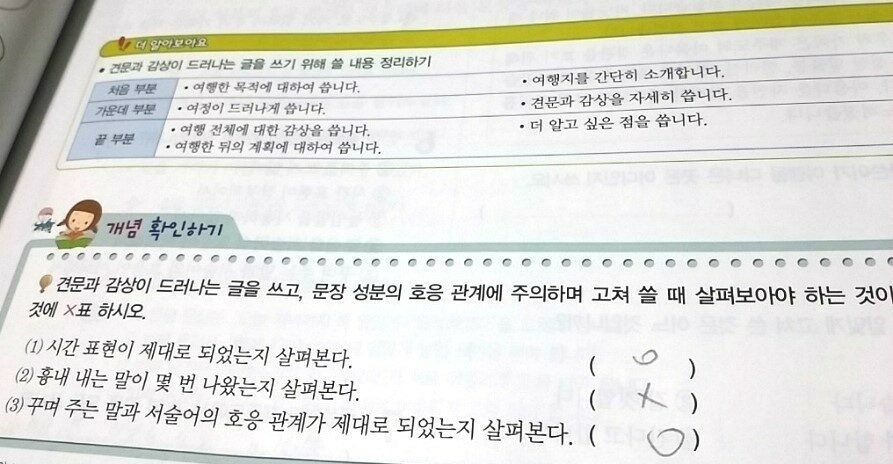 더 알아보아요
• 견문과 감상이 드러나는 글을 쓰기 위해 쓸 내용 정리하기
처음 부분 • 여행한 목적에 대하여 씁니다. • 여행지를 간단히 소개합니다.
가운데 부분 • 여정이 드러나게 씁니다. • 견문과 감상을 자세히 씁니다.
끝 부분 • 여행 전체에 대한 감상을 씁니다. • 더 알고 싶은 점을 씁니다.
• 여행한 뒤의 계획에 대하여 씁니다.
개념 확인하기
견문과 감상이 드러나는 글을 쓰고, 문장 성분의 호응 관계에 주의하며 고쳐 쓸 때 살펴보아야 하는 것이
것에 ×표 하시오.
(1) 시간 표현이 제대로 되었는지 살펴본다. ( ○ )
(2) 흉내 내는 말이 몇 번 나왔는지 살펴본다. ( × )
(3) 꾸며 주는 말과 서술어의 호응 관계가 제대로 되었는지 살펴본다. ( ○ )